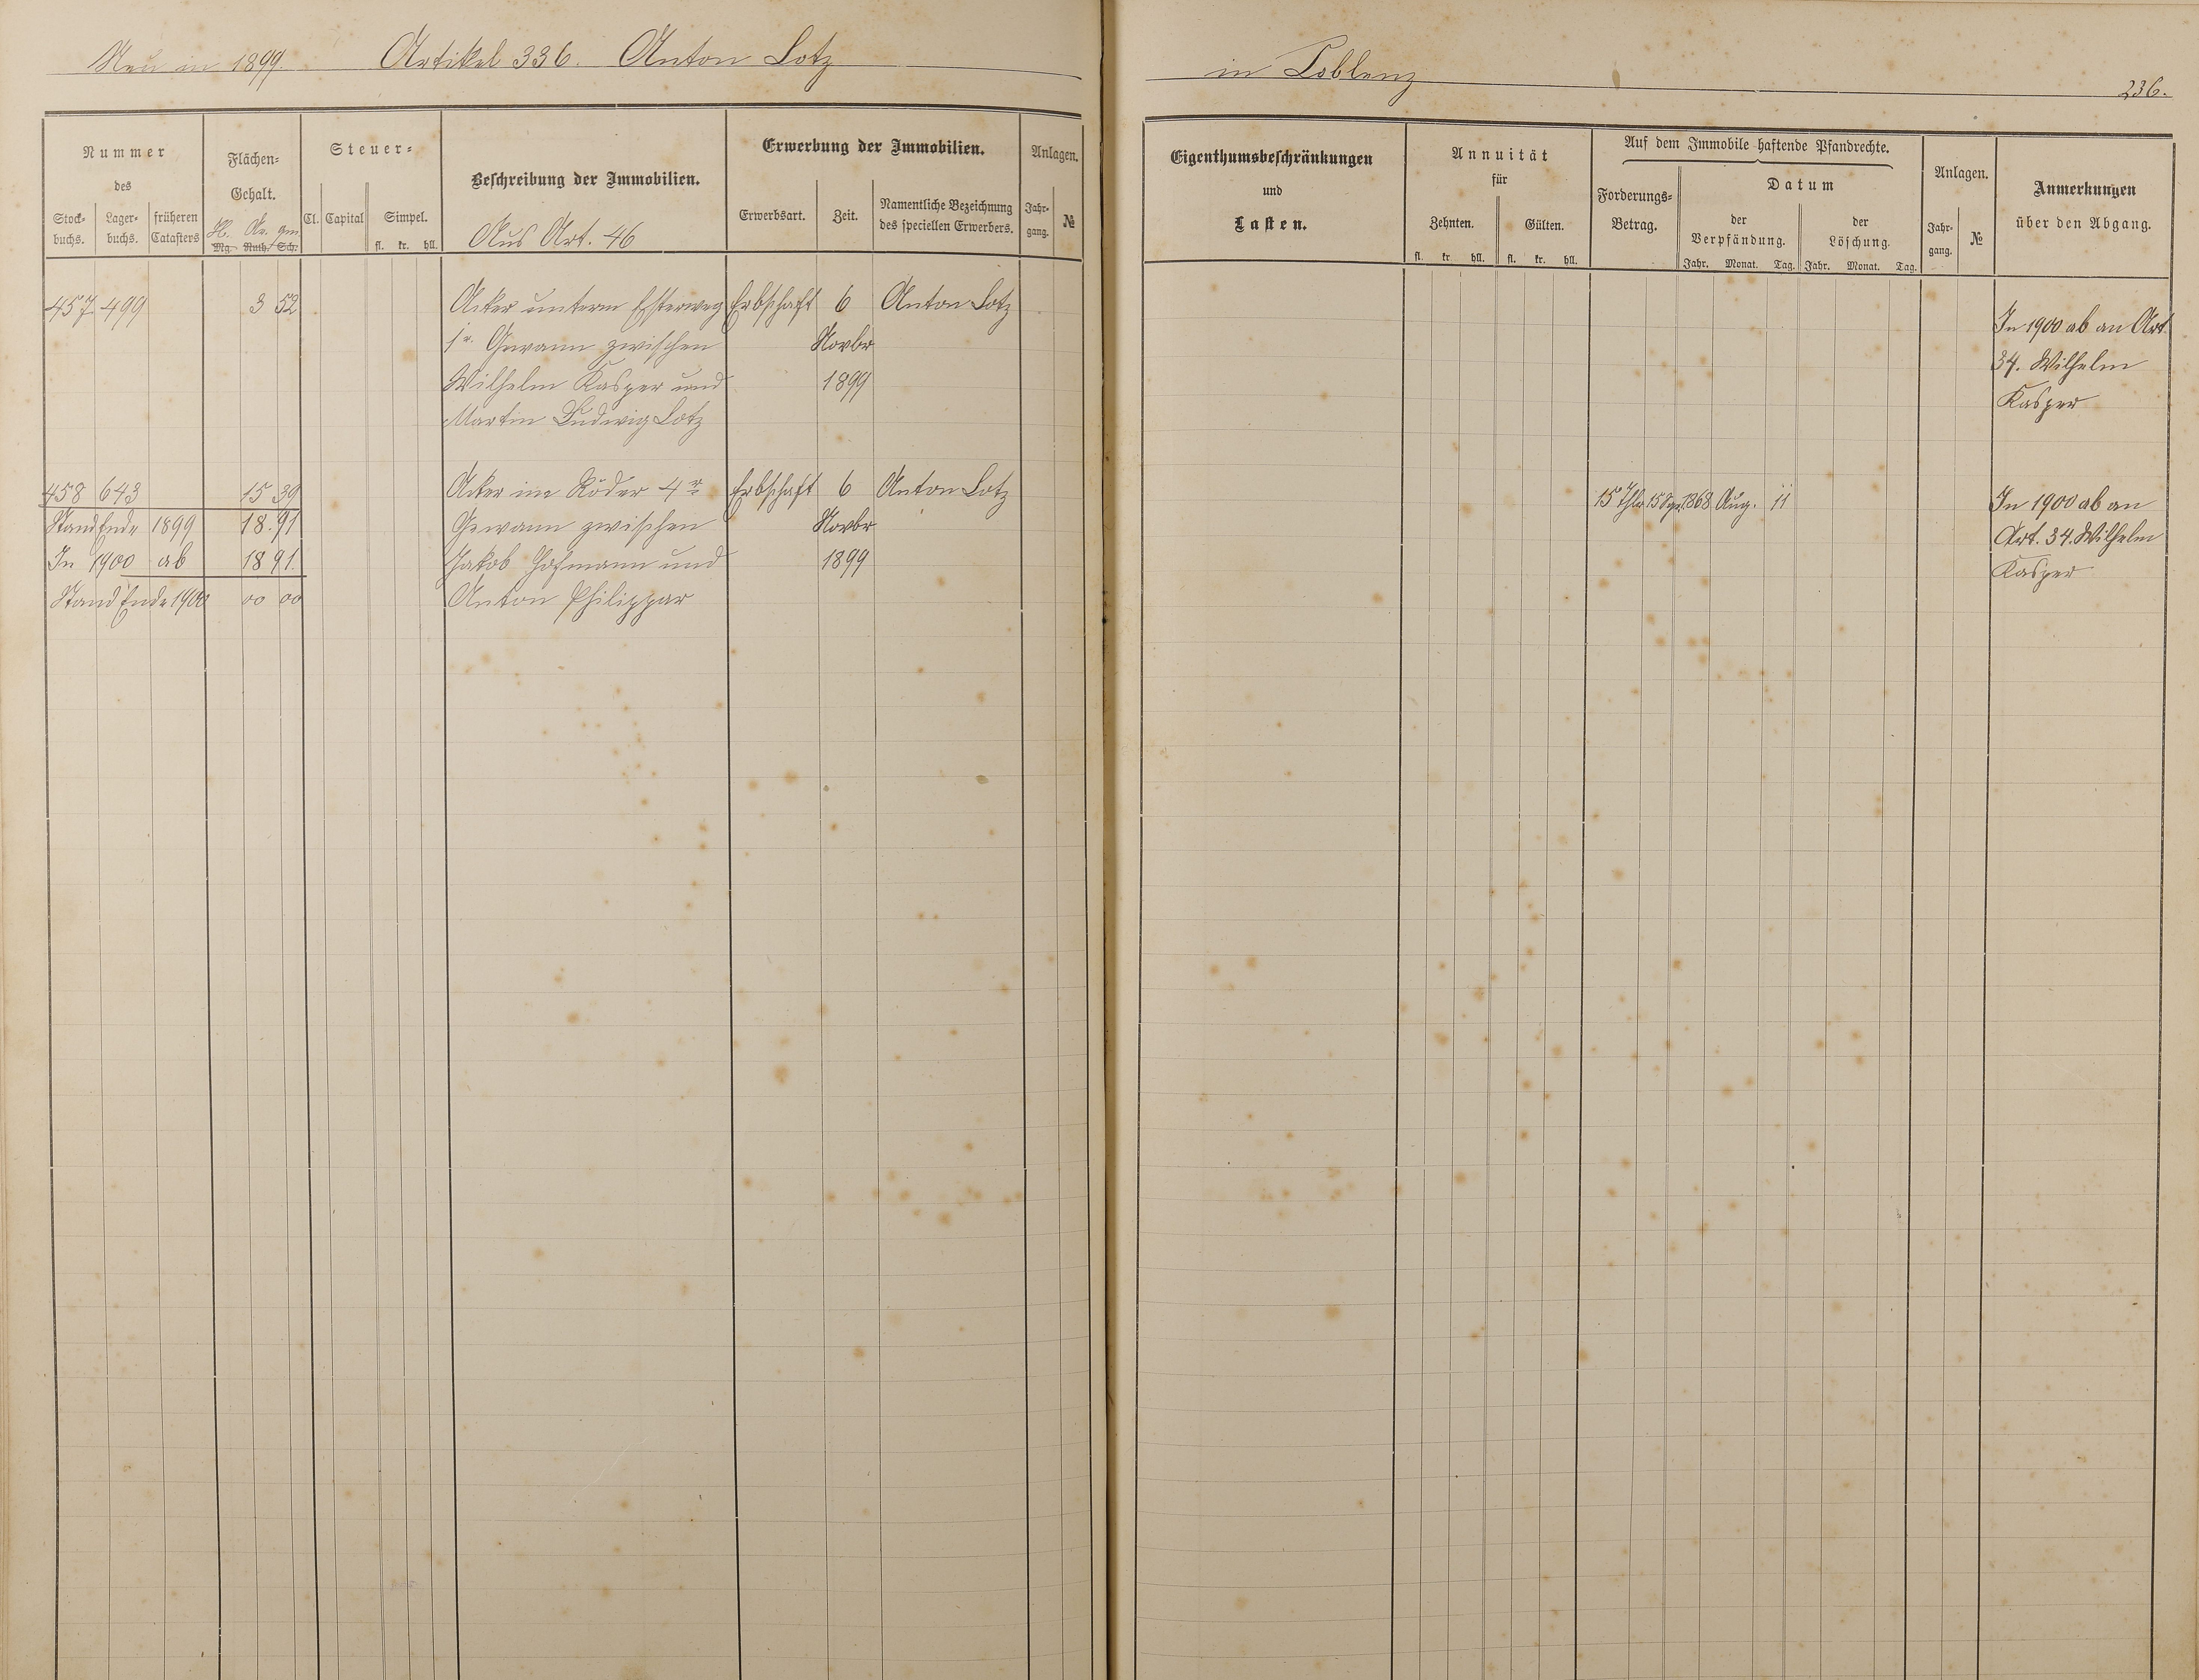 Neu in 1899. Artikel 336. Anton Lotz in Coblenz
236.
Nummer
des
Stock-
buchs.
Lager-
buchs.
früheren
Catasters
Flächen-
Gehalt.
H. Ar. qm
Mg. Ruth. Sch.
Steuer-
Cl. Capital Simpel.
fl. kr. hll.
Beschreibung der Immobilien.
Aus Art. 46
Erwerbung der Immobilien.
Erwerbsart. Zeit.
Namentliche Bezeichnung
des speciellen Erwerbers.
Anlagen.
Jahr-
gang. №
Eigenthumsbeschränkungen
und
Lasten.
Annuität
für
Zehnten. Gülten.
fl. kr. hll. fl. kr. hll.
Auf dem Immobile haftende Pfandrechte.
Forderungs-
Betrag.
Datum
der
Verpfändung.
Jahr. Monat. Tag.
der
Löschung.
Jahr. Monat. Tag.
Anlagen.
Jahr-
gang. №
Anmerkungen
über den Abgang.
457 499 3 52 Acker unterm Esterweg Erbschaft 6 Anton Lotz
1r. Gewann zwischen Novbr
Wilhelm Kasper und 1899
Martin Ludwig Lotz
In 1900 ab an Art.
34. Wilhelm
Kasper
458 643 15 39 Acker im Röder 4r Erbschaft 6 Anton Lotz
Stand Ende 1899 18.91 Gewann zwischen Novbr
In 1900 ab 18 91 Jakob Hofmann und 1899
Stand Ende 1900 00 00 Anton Philippar
15 Thlr 15 Sgr. 1868 Aug. 11
In 1900 ab an
Art. 34. Wilhelm
Kasper